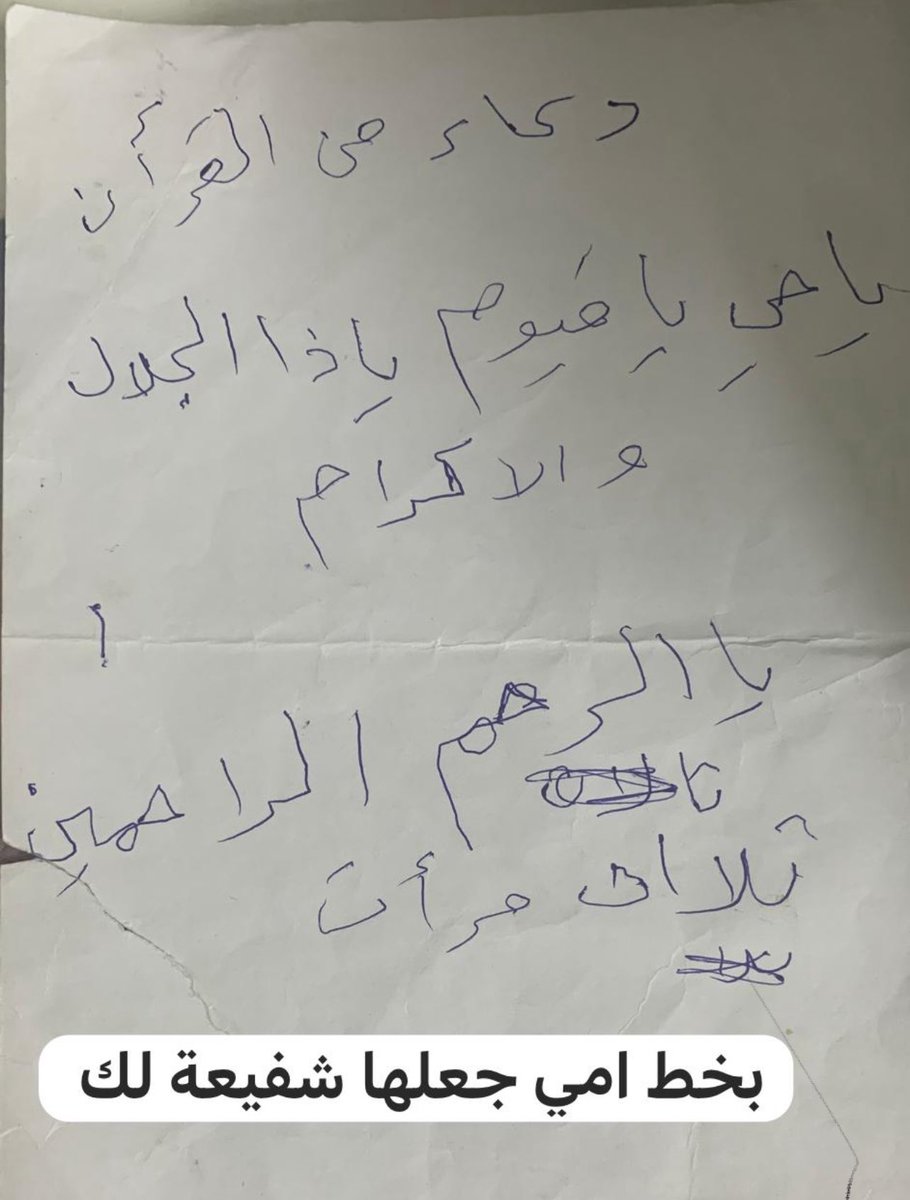 دعاء من القرأن
ياحي ياقيوم ياذا الجلال
والاكرام
أ
يا الرحم الراحمين
ثلاث مرأت
بخط امي جعلها شفيعة لك